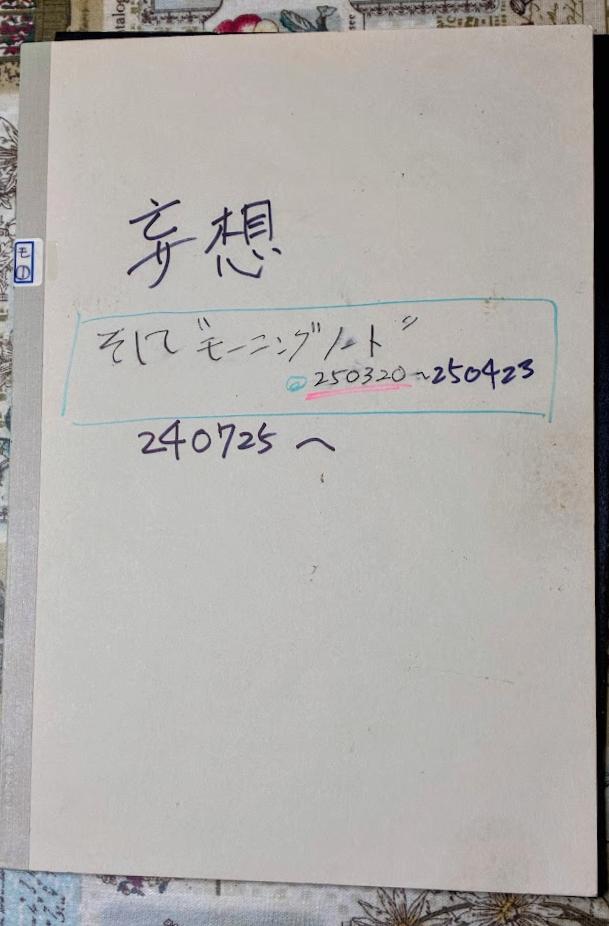 妄想
そして"モーニングノート"
250320~250423
240725~
モ
①